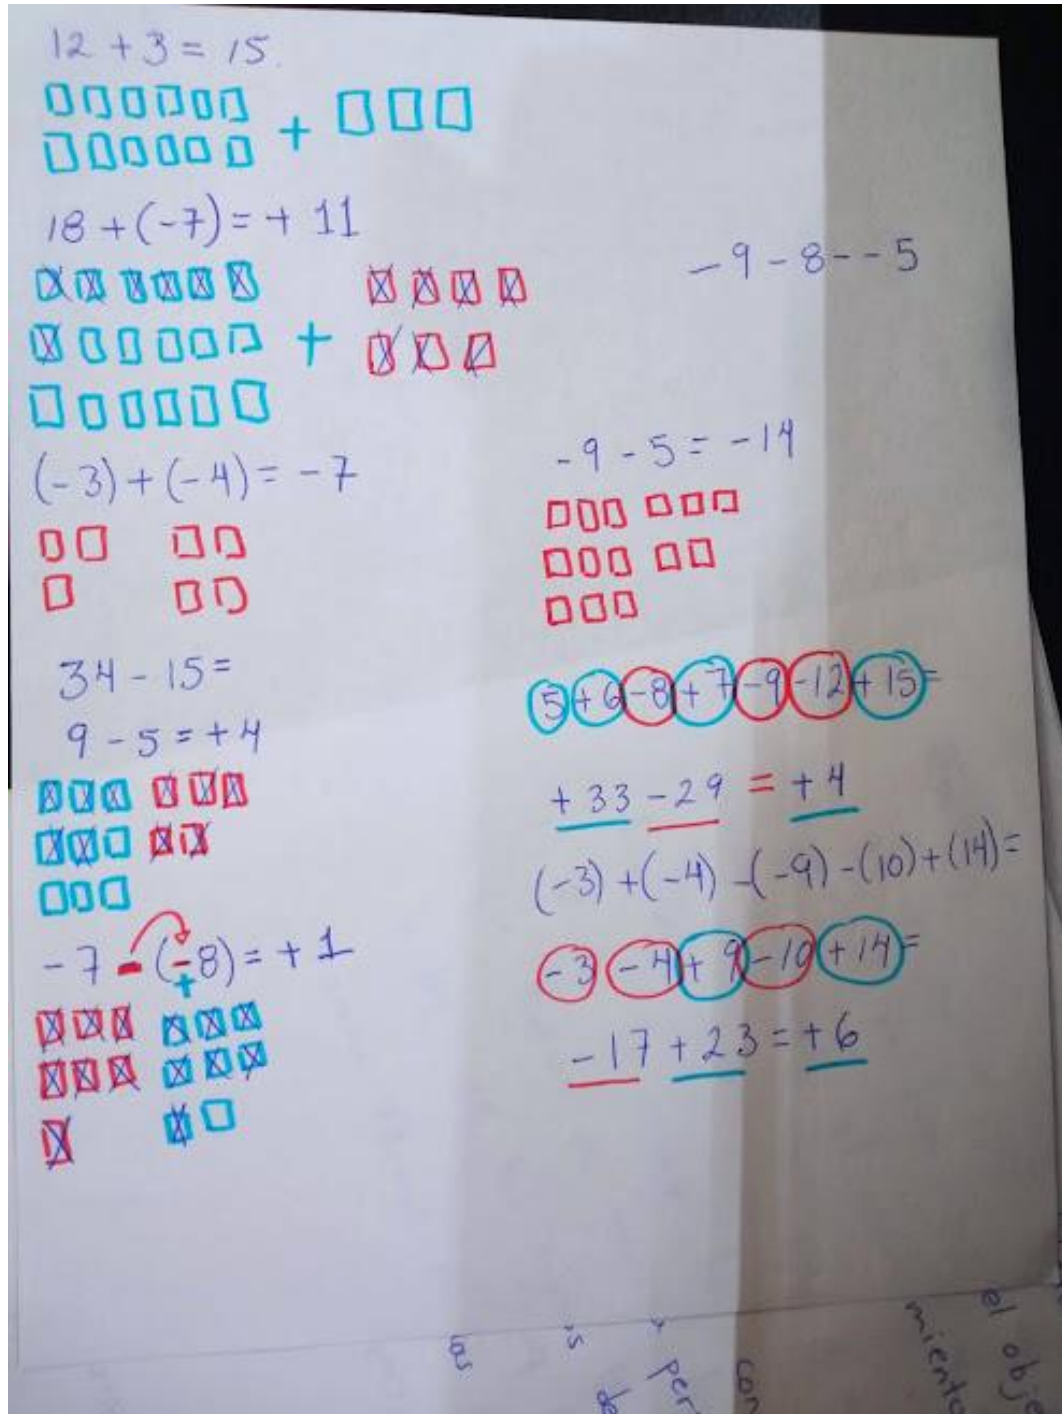 12 + 3 = 15.
+
18 + (-7) = + 11
+
(-3) + (-4) = -7
34 - 15 =
9 - 5 = + 4
-7 - (-8) = + 1
+
-9 - 8 - - 5
-9 - 5 = -14
5 + 6 - 8 + 7 - 9 - 12 + 15 =
+33 - 29 = +4
(-3) + (-4) - (-9) - (10) + (14) =
-3 - 4 + 9 - 10 + 14 =
-17 + 23 = +6
con
el obje
miento